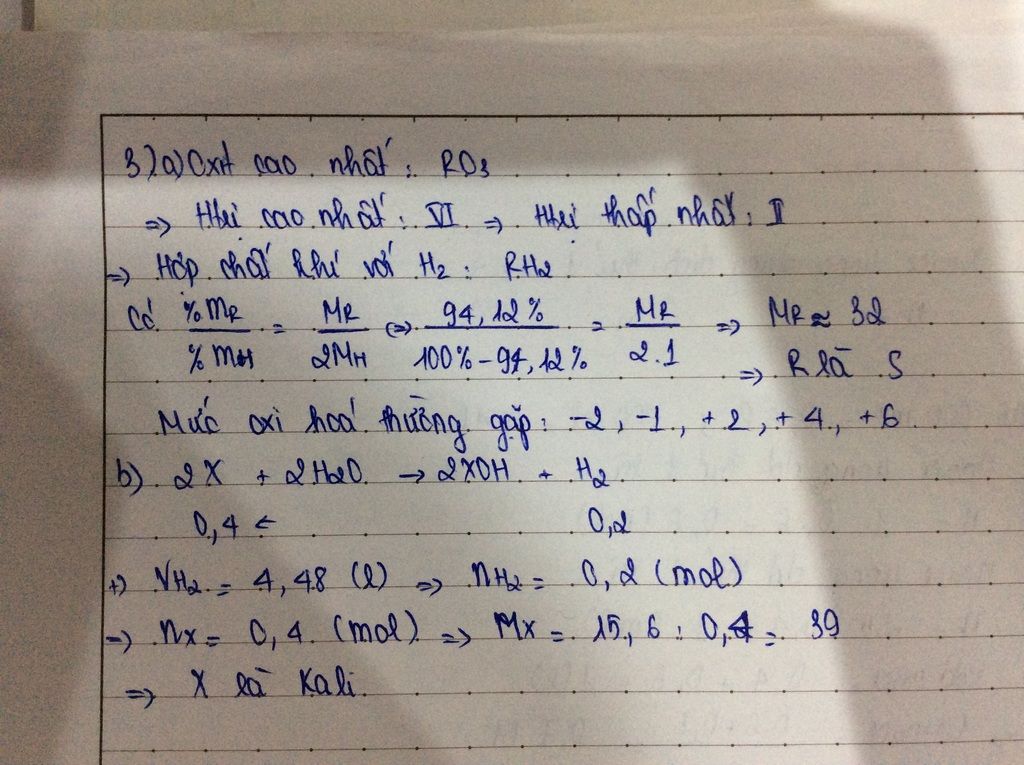 3) a) Oxit cao nhất: RO3
=> Htrị cao nhất: VI => Htrị thấp nhất: II
=> Hợp chất khí với H2: RH2
Có %mR / %mH = MR / 2MH <=> 94,12% / 100% - 94,12% = MR / 2.1 => MR ≈ 32
=> R là S
Mức oxi hoá thường gặp: -2, -1, +2, +4, +6
b) 2X + 2H2O → 2XOH + H2
0,4 ← 0,2
+) VH2 = 4,48 (l) => nH2 = 0,2 (mol)
=> nX = 0,4 (mol) => MX = 15,6 : 0,4 = 39
=> X là Kali